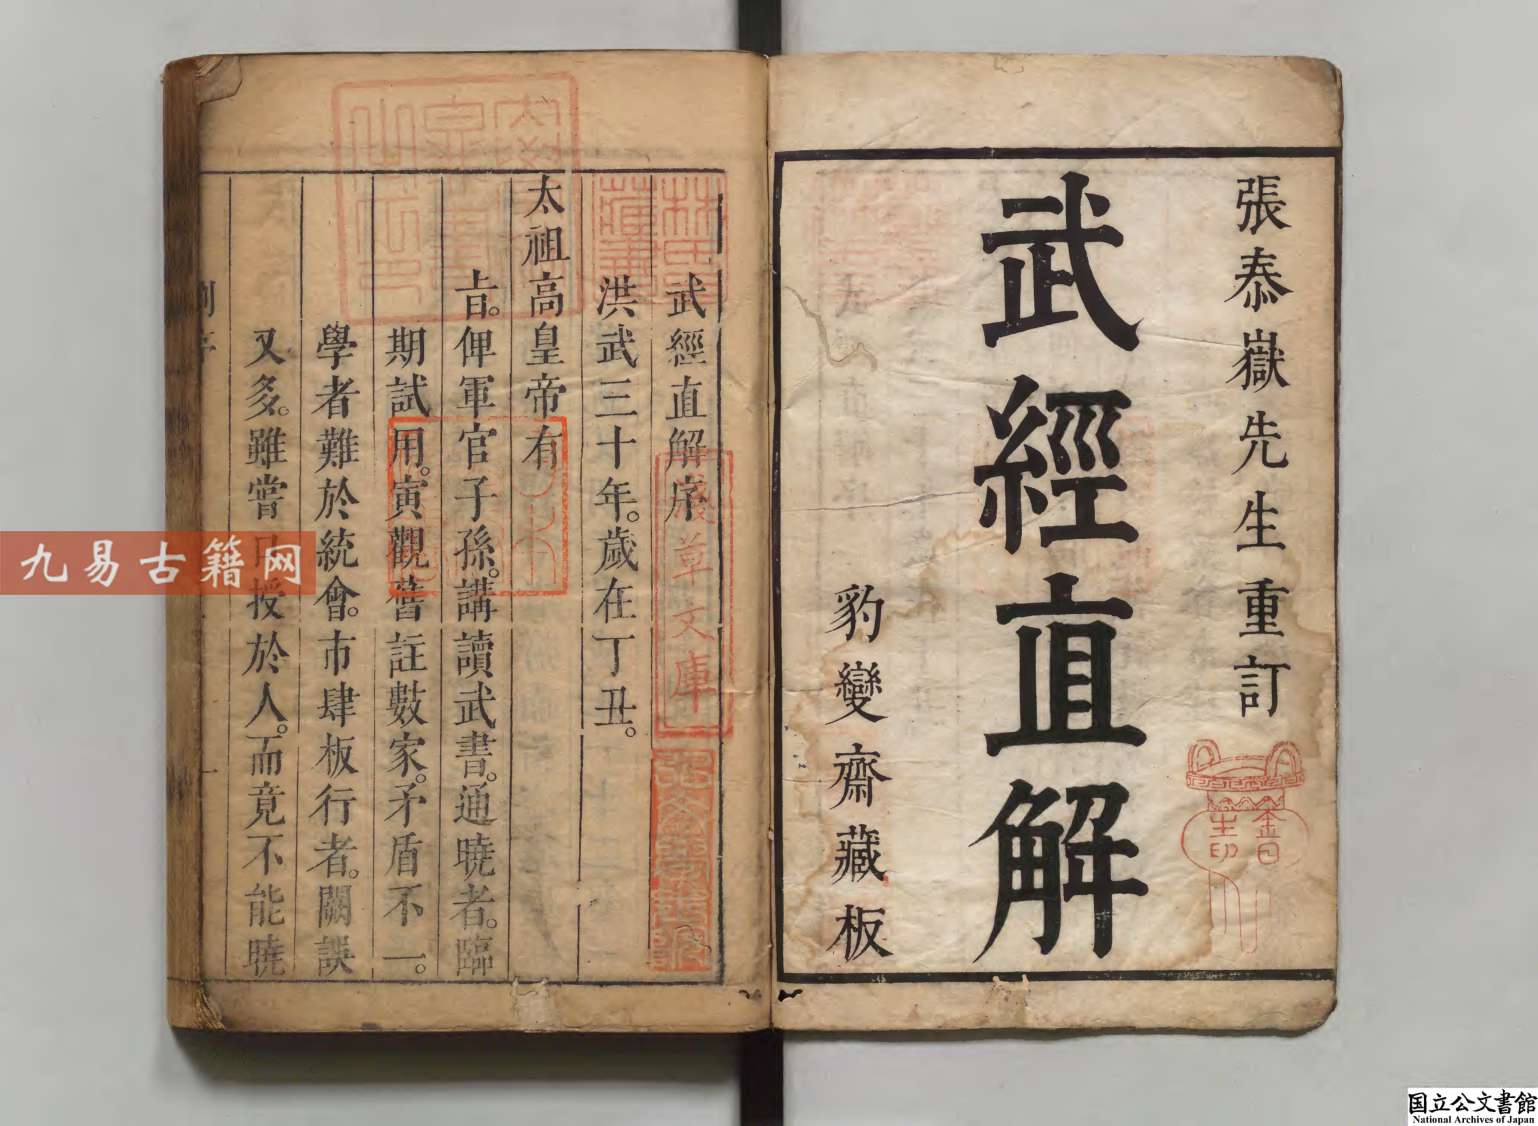 張泰嶽先生重訂
武經直解
豹變齋藏板
武經直解序
洪武三十年。歲在丁丑。
太祖高皇帝有
旨。俾軍官子孫。講讀武書。通曉者。臨
期試用。寅觀舊註數家。矛盾不一。
學者難於統會。市肆板行者。闕誤
又多。雖嘗口授於人。而竟不能曉
林氏藏書
淺草文庫
九易古籍网
国立公文書館
National Archives of Japan